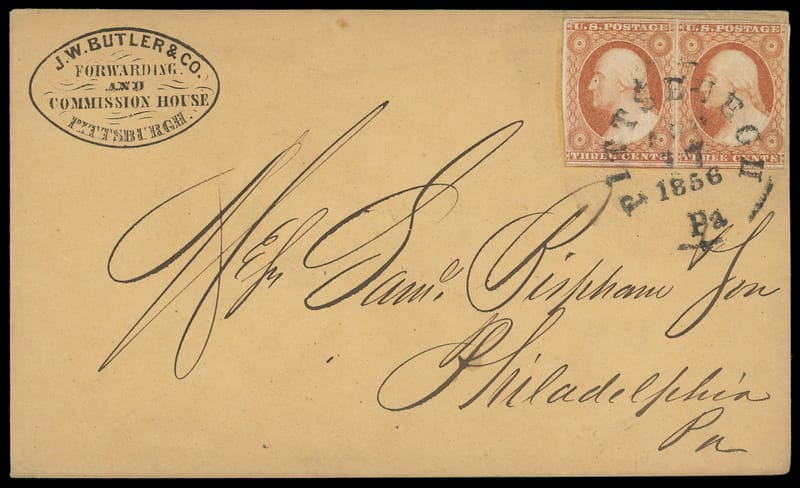 J. W. BUTLER & CO.
FORWARDING
AND
COMMISSION HOUSE
PITTSBURGH.
U.S. POSTAGE
THREE CENTS
U.S. POSTAGE
THREE CENTS
PITTSBURGH
1856
Pa
Messrs Saml. Bispham Son
Philadelphia
Pa